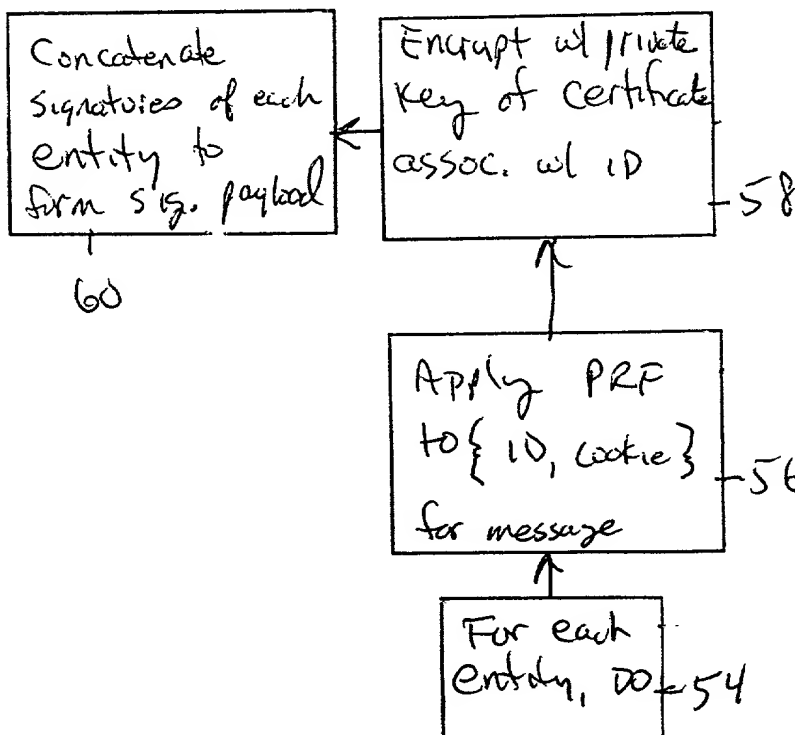 Concatenate
signatures of each
entity to
form sig. payload
60
Encrypt w/ private
key of certificate
assoc. w/ ID
58
Apply PRF
to { ID, cookie }
for message
56
For each
entity, DO
54